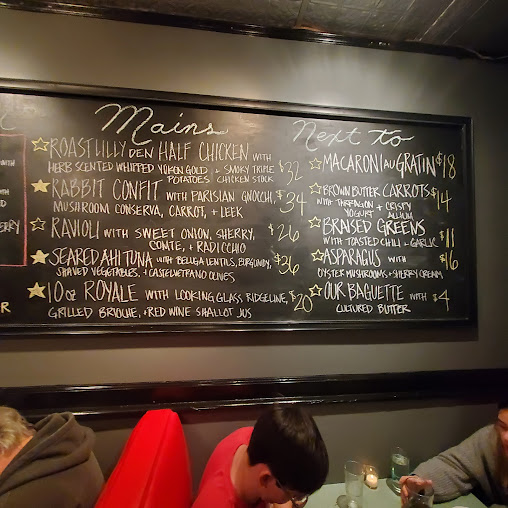 Mains
ROAST LILLY DEN HALF CHICKEN WITH
HERB SCENTED WHIPPED YUKON GOLD POTATOES + SMOKY TRIPLE CHICKEN STOCK $32
RABBIT CONFIT WITH PARISIAN GNOCCHI,
MUSHROOM CONSERVA, CARROT, + LEEK $34
RAVIOLI WITH SWEET ONION, SHERRY, $26
COMTE, + RADICCHIO
SEARED AHI TUNA WITH BELUGA LENTILS, BURGUNDY, $36
SHAVED VEGETABLES, + CASTELVETRANO OLIVES
10 oz ROYALE WITH LOOKING GLASS RIDGELINE, $20
GRILLED BRIOCHE, + RED WINE SHALLOT JUS
Next to
MACARONI AU GRATIN $18
BROWN BUTTER CARROTS $14
WITH TARRAGON + CRISPY
YOGURT ALLIUM
BRAISED GREENS
WITH TOASTED CHILI + GARLIC $11
ASPARAGUS WITH $16
OYSTER MUSHROOMS + SHERRY CREAM
OUR BAGUETTE WITH $4
CULTURED BUTTER